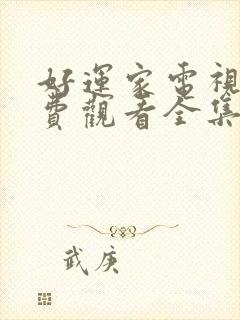 好運家電視
費觀看全集
武庚